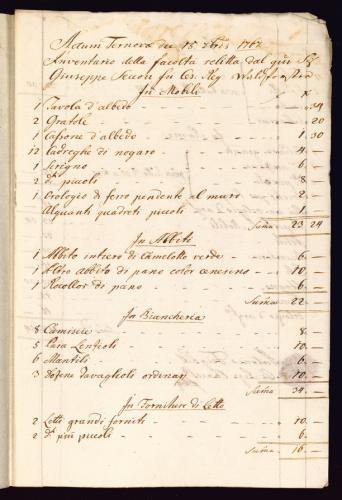 Actum Ternova die 15 Xbris 1762
Inventario della facoltà relitta dal qm Sig
Giuseppe fu Ces. Reg.
In Mobili
1 Tavola d'albedo - 34
2 Gratole - 20
1 Casone d'albedo 1 30
12 Cadreghi di nogaro 4 -
1 Scrigno 6 -
2 di piccoli 8 -
1 Orologio di ferro pendente al muro 2 -
Alquanti quadreti picoli 1 -
Suma 23 24
In Abbiti
1 Abbito intiero di Camelotto verde 6 -
1 Altro abbito di pano color cenerino 10 -
1 Rocollor di pano 6 -
Suma 22 -
In Biancheria
8 Camiscie 8 -
5 Para Lenzioli 10 -
6 Mantili 6 -
3 Dozene tavaglioli ordinarj 10 -
Suma 34 -
In Forniture di Letto
2 Letti grandi forniti 10 -
2 di più piccoli 6 -
Suma 16 -